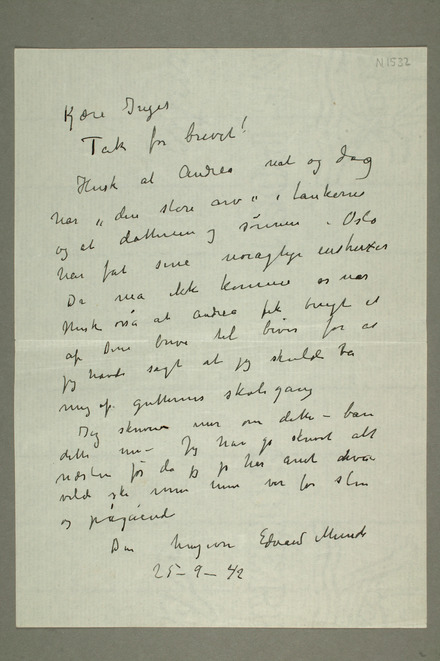 N1532
Kjære Inger
Tak for brevet!
Husk at Andrea nat og dag
har „den store arv" i tankerne
og at datteren og sønnen i Oslo
har fåt sine
Du må ikke komme os nær
Husk også at Andrea fik brugt et
af Dine breve til bevis for at
jeg havde sagt at jeg skulde ta
mig af gutternes skolegang
Jeg skriver mer om dette – bare
dette nu – Jeg har jo skrevet alt
næsten før da jeg jo har anet
vilde ske
og pågående
Din hengivne Edvard Munch
25–9–42